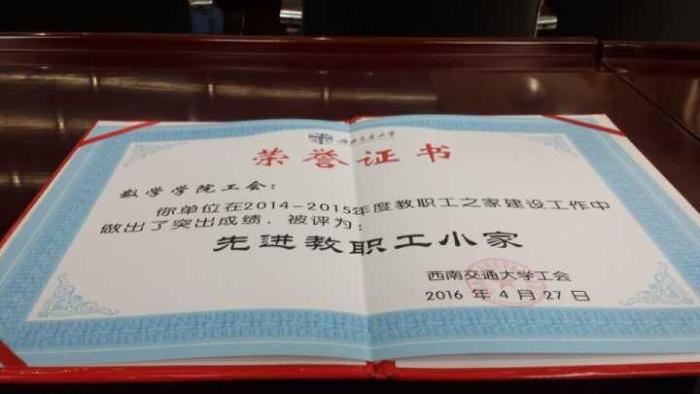 西南交通大学
荣誉证书
数学学院工会：
你单位在2014-2015年度教职工之家建设工作中
做出了突出成绩，被评为：
先进教职工小家
西南交通大学工会
2016 年 4 月 27 日